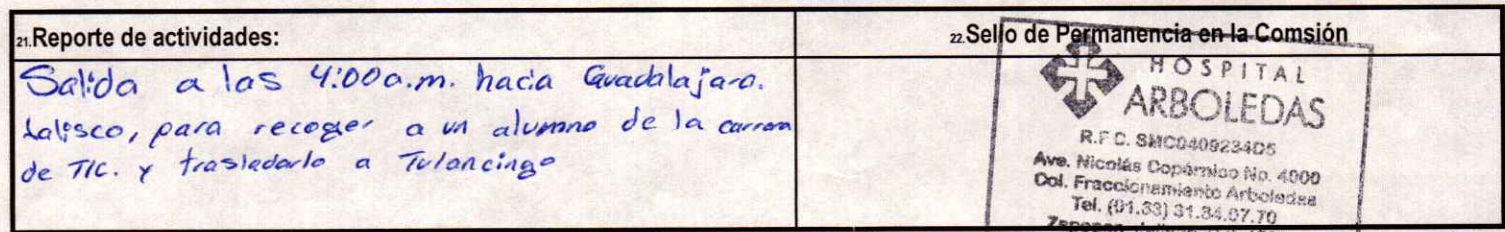 21.Reporte de actividades:
Salida a las 4:00a.m. hacia Guadalajara.
Jalisco, para recoger a un alumno de la carrera
de TIC. y trasladarlo a Tulancingo
22.Sello de Permanencia en la Comsión
HOSPITAL
ARBOLEDAS
R.F.C. SMC0409234D5
Ave. Nicolás Copérnico No. 4000
Col. Fraccionamiento Arboledas
Tel. (01.33) 31.34.07.70
Zapopan,